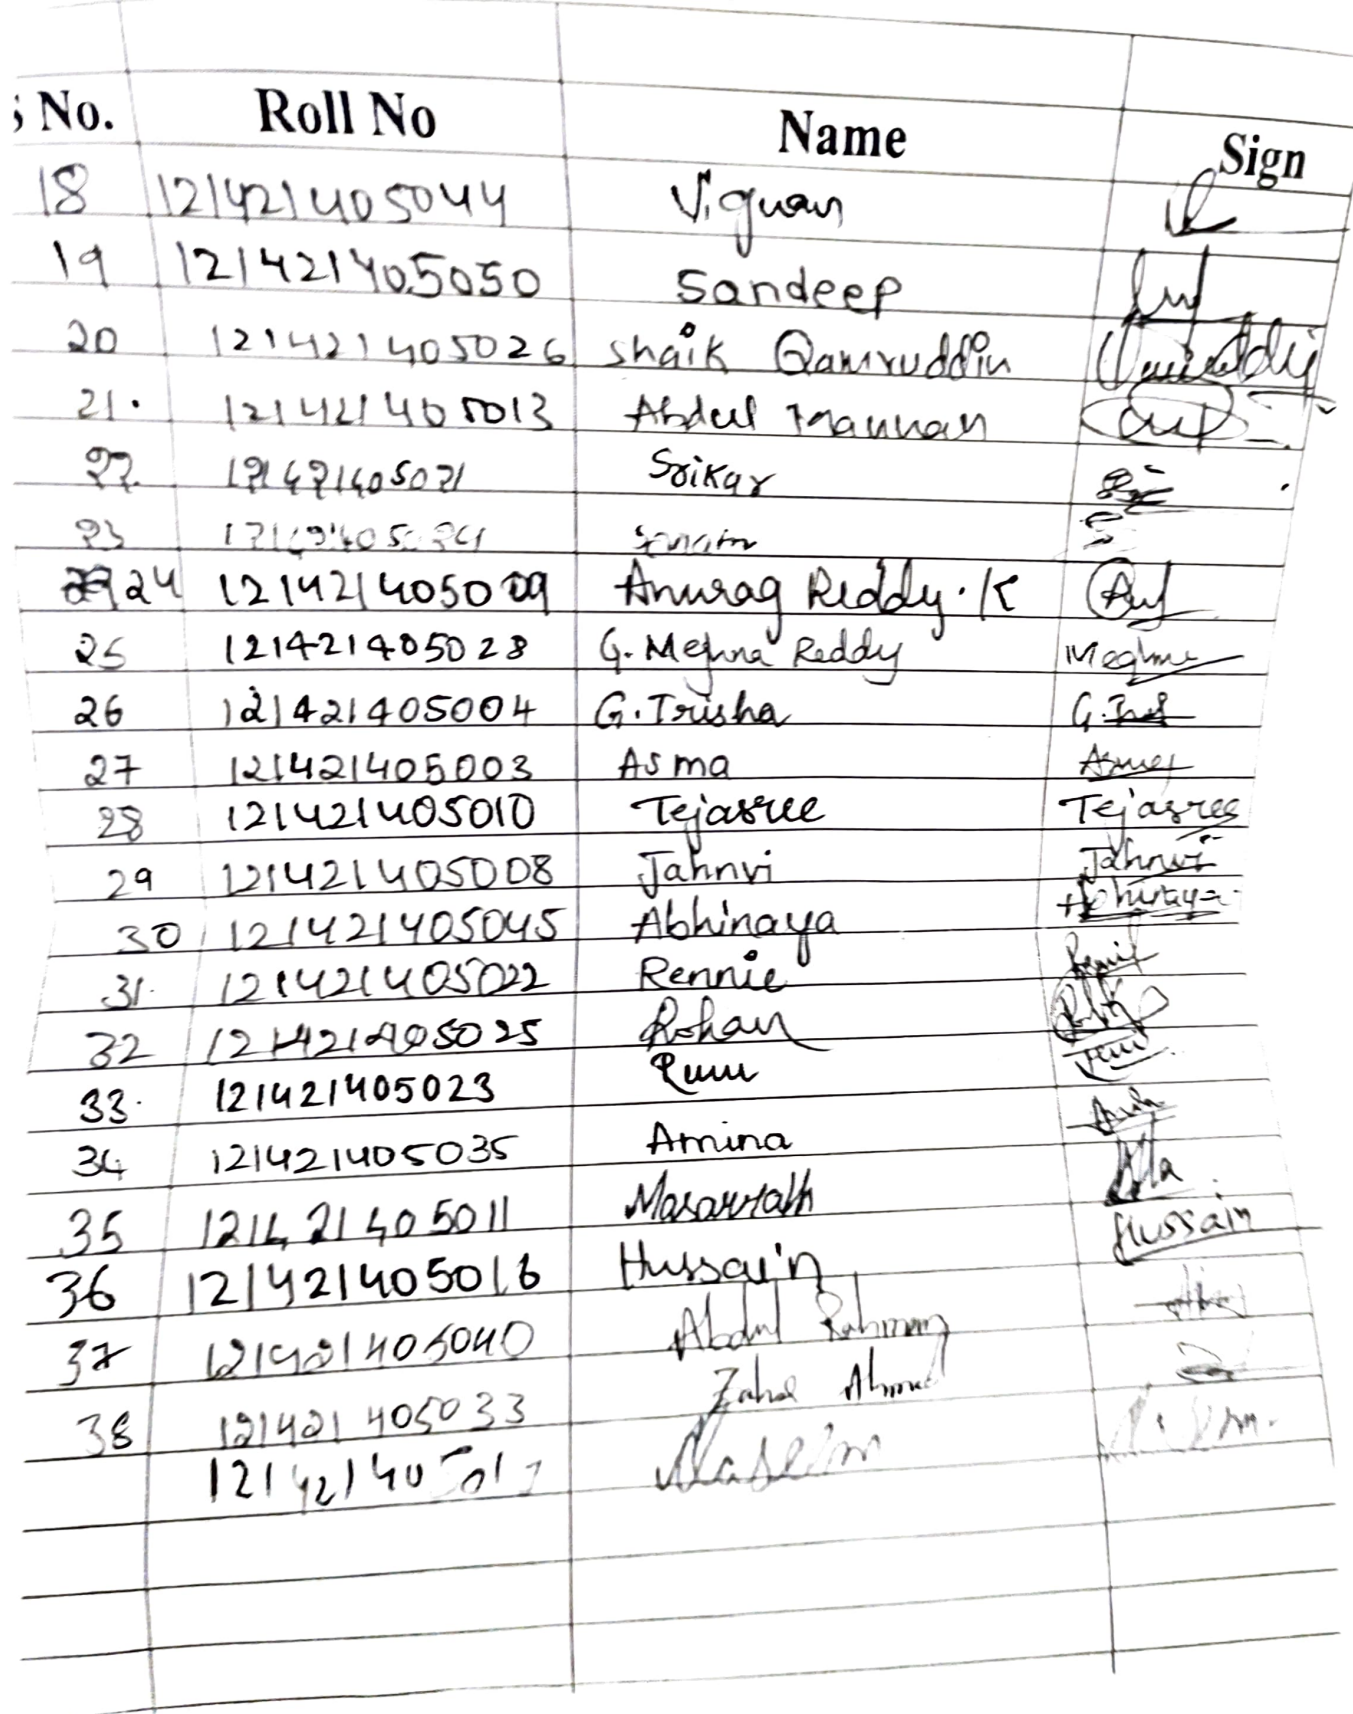 No. Roll No Name Sign
18 121421405044 Vignan
19 121421405050 Sandeep
20 121421405026 Shaik Qamruddin
21. 121421405013 Abdul Mannan
22. 121421405021 Srikar
23
24 121421405009 Anurag Reddy.K
25 121421405028 G. Meghna Reddy Meghna
26 121421405004 G. Trisha G.
27 121421405003 Asma
28 121421405010 Tejasree Tejasree
29 121421405008 Jahnvi Jahnvi
30 121421405045 Abhinaya Abhinaya
31. 121421405022 Rennie
32 121421405025 Rohan
33. 121421405023
34 121421405035 Amina
35 121421405011 Masarrath
36 121421405016 Hussain Hussain
37 121421405040 Abdul Rahman
38 121421405033 Ahmed
Naseem